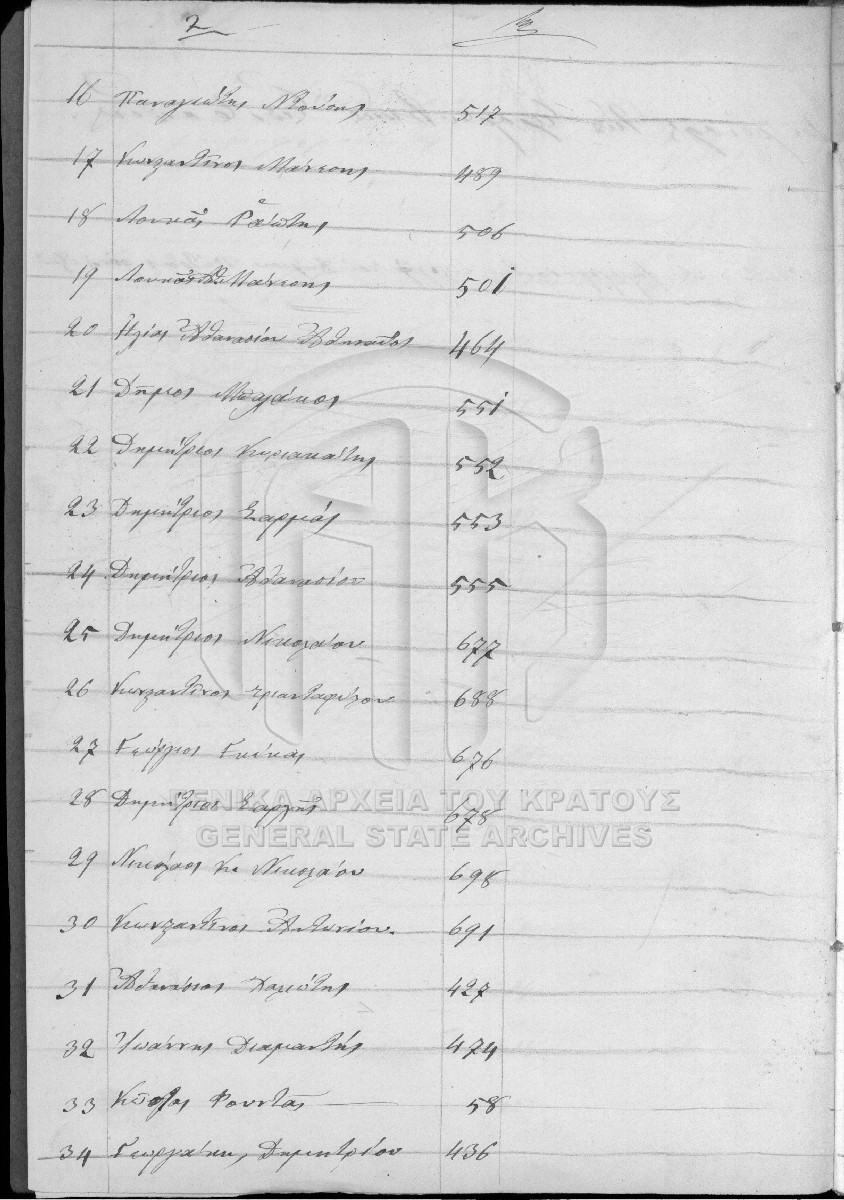 2
16 Παναγιώτης Ντούσης 517
17 Κωνσταντίνος Μάνεσης 489
18 Λουκάς Ραΐτης 506
19 Λουκάς Μάνεσης 501
20 Ηλίας Αθανασίου Αθηναίος 464
21 Δήμος Μπαλάκος 551
22 Δημήτριος Κυριακάτης 552
23 Δημήτριος Σαρμάς 553
24 Δημήτριος Αθανασίου 555
25 Δημήτριος Νικολάου 677
26 Κωνσταντίνος Τριανταφύλου 688
27 Γεώργιος Γκίκας 676
28 Δημήτριος 678
29 Νικόλαος Κ. Νικολάου 698
30 Κωνσταντίνος Αντωνίου. 691
31 Αθανάσιος 427
32 Ιωάννης Διαμαντής 474
33 Κώστας Φουντάς 58
34 Γεωργάκης Δημητρίου 436
ΓΕΝΙΚΑ ΑΡΧΕΙΑ ΤΟΥ ΚΡΑΤΟΥΣ
GENERAL STATE ARCHIVES